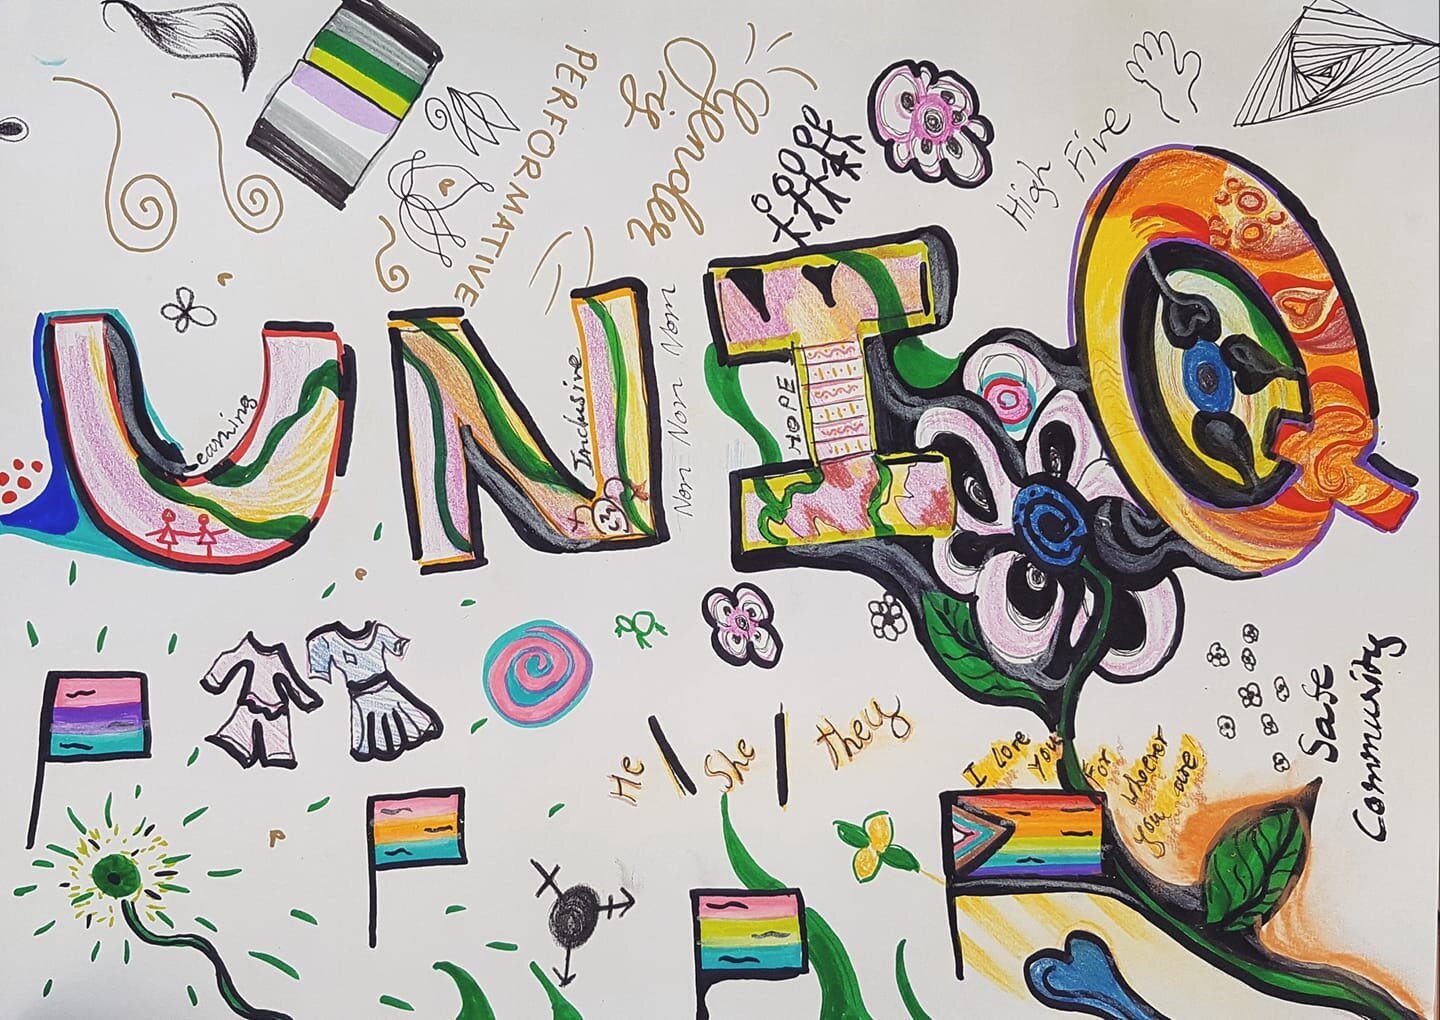 Gender
is
PERFORMATIVE
High Five
UNIQ
Learning
Inclusive
Non-Non Non
HOPE
He / She / they
I Love
You
For
whoever
you are!
Safe
Community